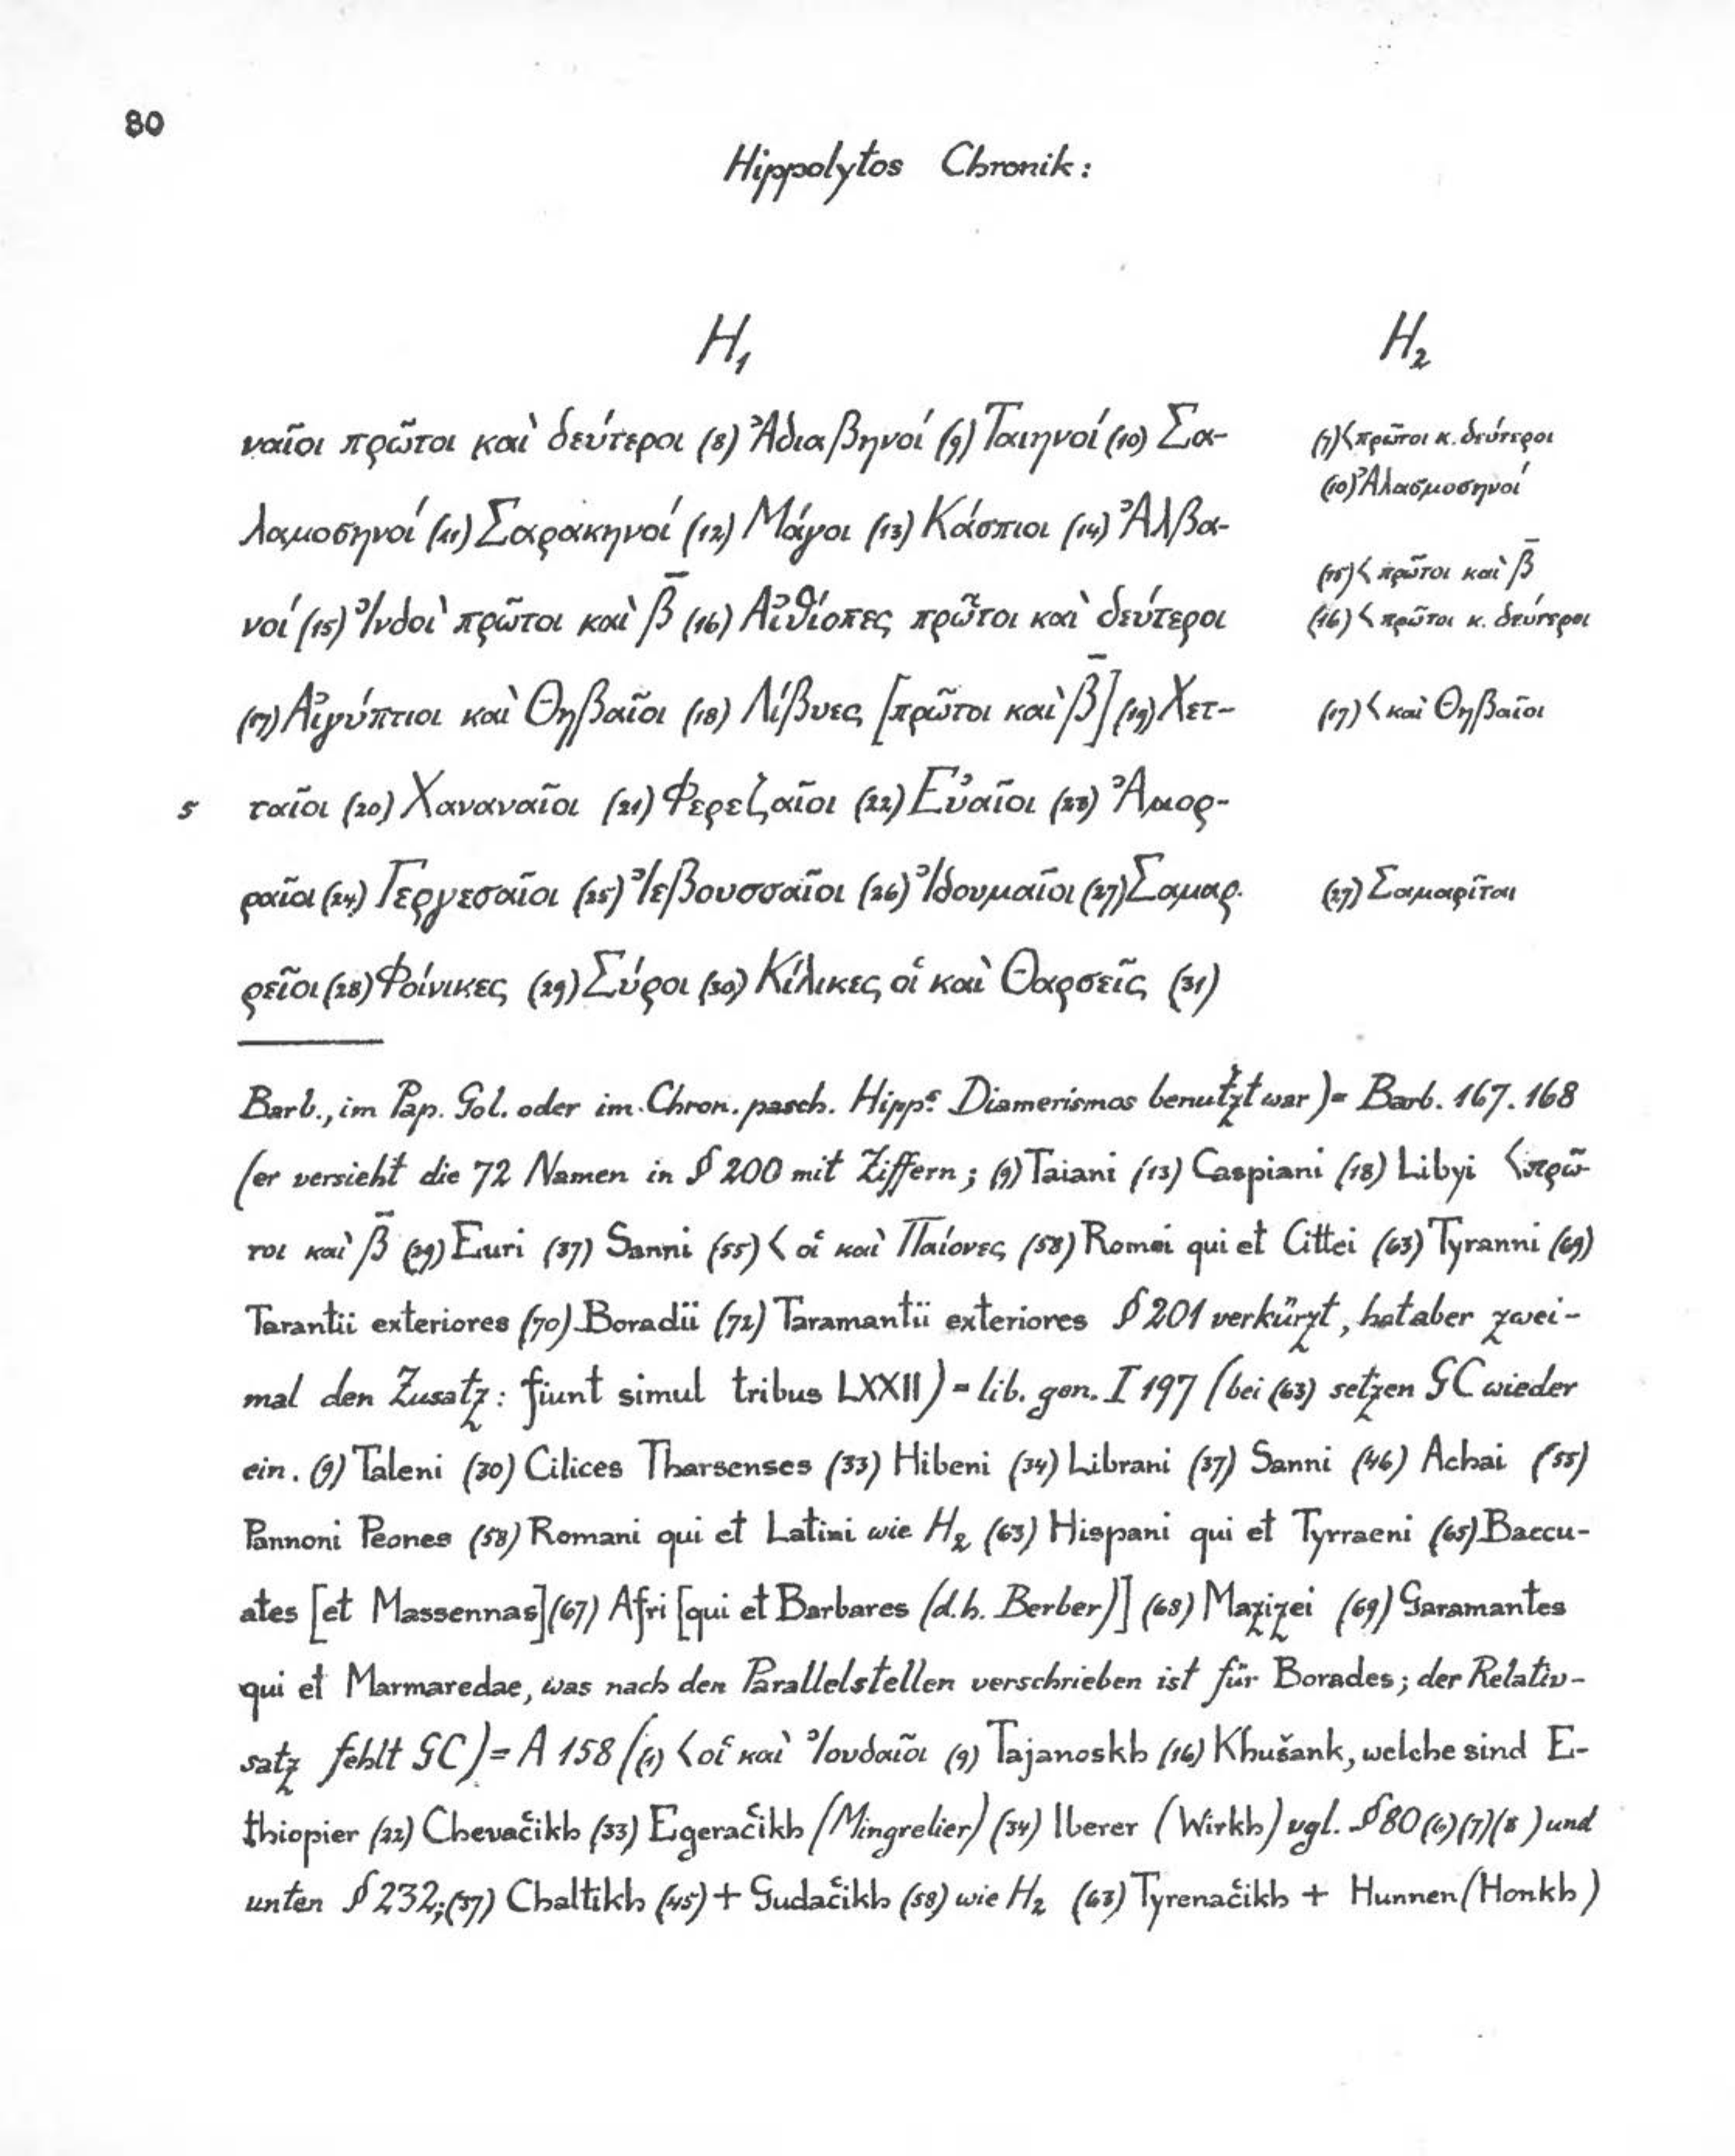 80
Hippolytos Chronik:
H₁
H₂
ναῖοι πρῶτοι καὶ δεύτεροι (8) Ἀδιαβηνοί (9) Ταιηνοί (10) Σα-
(7)< πρῶτοι κ. δεύτεροι
(10) Ἀλασμοσηνοί
λαμοσηνοί (11) Σαρακηνοί (12) Μάγοι (13) Κάσπιοι (14) Ἀλβα-
(15)< πρῶτοι καὶ β̄
νοί (15) Ἰνδοὶ πρῶτοι καὶ β̄ (16) Αἰθίοπες πρῶτοι καὶ δεύτεροι
(16)< πρῶτοι κ. δεύτεροι
(17) Αἰγύπτιοι καὶ Θηβαῖοι (18) Λίβυες [πρῶτοι καὶ β̄] (19) Χετ-
(17)< καὶ Θηβαῖοι
5 ταῖοι (20) Χαναναῖοι (21) Φερεζαῖοι (22) Εὐαῖοι (23) Ἀμορ-
ραῖοι (24) Γεργεσαῖοι (25) Ἰεβουσσαῖοι (26) Ἰδουμαῖοι (27) Σαμαρ.
(27) Σαμαρῖται
ρεῖοι (28) Φοίνικες (29) Σύροι (30) Κίλικες οἱ καὶ Θαρσεῖς (31)
Barb., im Pap. Gol. oder im Chron. pasch. Hipp.s Diamerismos benutzt war) = Barb. 167. 168
(er versieht die 72 Namen in § 200 mit Ziffern; (9) Taiani (13) Caspiani (18) Libyi < πρῶ-
τοι καὶ β̄ (29) Euri (37) Sanni (55) < οἱ καὶ Παίονες (58) Romei qui et Cittei (63) Tyranni (69)
Tarantii exteriores (70) Boradii (72) Taramantii exteriores § 201 verkürzt, hat aber zwei-
mal den Zusatz: fiunt simul tribus LXXII) = lib. gen. I 197 (bei (63) setzen GC wieder
ein. (9) Taleni (30) Cilices Tharsenses (33) Hibeni (34) Librani (37) Sanni (46) Achai (55)
Pannoni Peones (58) Romani qui et Latini wie H₂ (63) Hispani qui et Tyrraeni (65) Baccu-
ates [et Massennas] (67) Afri [qui et Barbares (d.h. Berber)] (68) Mazizei (69) Garamantes
qui et Marmaredae, was nach den Parallelstellen verschrieben ist für Borades; der Relativ-
satz fehlt GC) = A 158 ((1) < οἱ καὶ Ἰουδαῖοι (9) Tajanoskh (16) Khušank, welche sind E-
thiopier (22) Chevačikh (33) Egeračikh (Mingrelier) (34) Iberer (Wirkh) vgl. § 80 (6)(7)(8) und
unten § 232; (37) Chaltikh (45) + Gudačikh (58) wie H₂ (63) Tyrenačikh + Hunnen (Honkh)